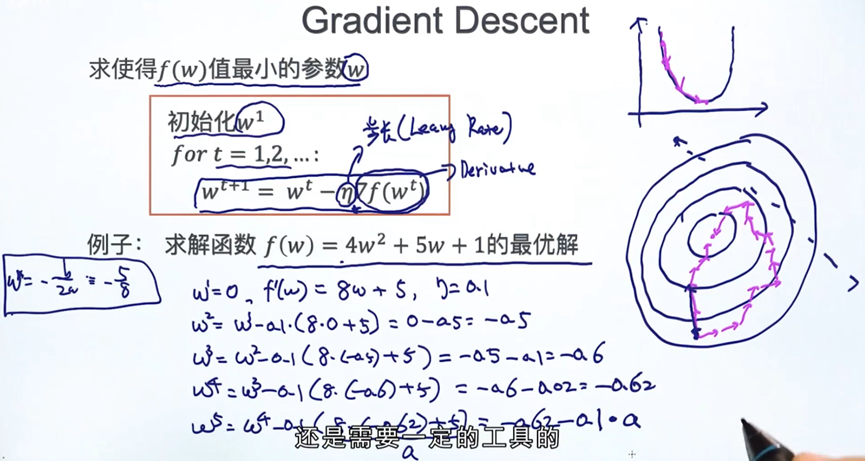 Gradient Descent
求使得f(w)值最小的参数w
初始化w¹
步长(Learing Rate)
for t = 1,2, ...:
Derivative
wᵗ⁺¹ = wᵗ − η∇f(wᵗ)
例子： 求解函数 f(w) = 4w² + 5w + 1的最优解
w* = -b/2a = -5/8
w¹=0, f'(w) = 8w+5, η=0.1
w² = w¹-0.1·(8·0+5) = 0-0.5 = -0.5
w³ = w²-0.1(8·(-0.5)+5) = -0.5-0.1 = -0.6
w⁴ = w³-0.1(8·(-0.6)+5) = -0.6-0.02 = -0.62
w⁵ = w⁴-0.1(8·(-0.62)+5) = -0.62-0.1·a
a
还是需要一定的工具的